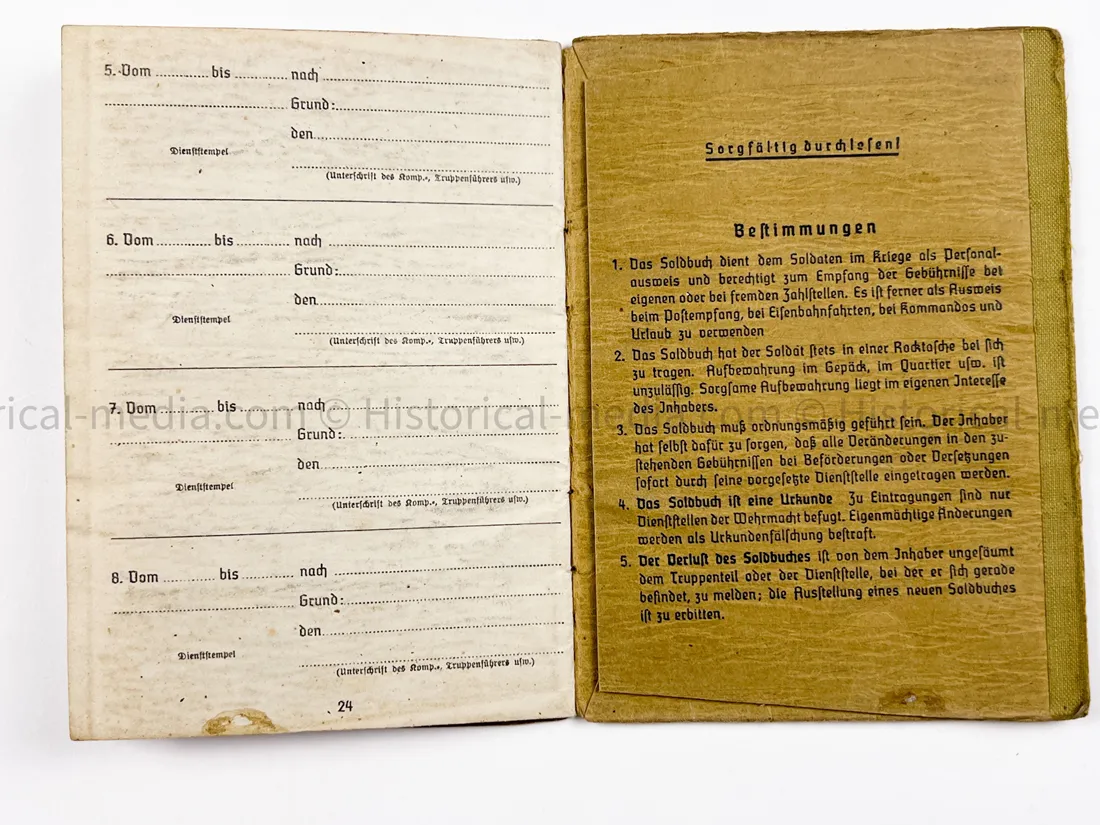 5. Vom ............ bis ............ nach ............
............ Grund: ............
den ............
Dienststempel
(Unterschrift des Komp.-, Truppenführers usw.)
6. Vom ............ bis ............ nach ............
............ Grund: ............
den ............
Dienststempel
(Unterschrift des Komp.-, Truppenführers usw.)
7. Vom ............ bis ............ nach ............
............ Grund: ............
den ............
Dienststempel
(Unterschrift des Komp.-, Truppenführers usw.)
8. Vom ............ bis ............ nach ............
............ Grund: ............
den ............
Dienststempel
(Unterschrift des Komp.-, Truppenführers usw.)
24
Sorgfältig durchlesen!
Bestimmungen
1. Das Soldbuch dient dem Soldaten im Kriege als Personal-
ausweis und berechtigt zum Empfang der Gebührnisse bei
eigenen oder bei fremden Zahlstellen. Es ist ferner als Ausweis
beim Postempfang, bei Eisenbahnfahrten, bei Kommandos und
Urlaub zu verwenden
2. Das Soldbuch hat der Soldat stets in einer Rocktasche bei sich
zu tragen. Aufbewahrung im Gepäck, im Quartier usw. ist
unzulässig. Sorgsame Aufbewahrung liegt im eigenen Interesse
des Inhabers.
3. Das Soldbuch muß ordnungsmäßig geführt sein. Der Inhaber
hat selbst dafür zu sorgen, daß alle Veränderungen in den zu-
stehenden Gebührnissen bei Beförderungen oder Versetzungen
sofort durch seine vorgesetzte Dienststelle eingetragen werden.
4. Das Soldbuch ist eine Urkunde Zu Eintragungen sind nur
Dienststellen der Wehrmacht befugt. Eigenmächtige Änderungen
werden als Urkundenfälschung bestraft.
5. Der Verlust des Soldbuches ist von dem Inhaber ungesäumt
dem Truppenteil oder der Dienststelle, bei der er sich gerade
befindet, zu melden; die Ausstellung eines neuen Soldbuches
ist zu erbitten.
orical-media.com © Historical-media.com © Historical-me